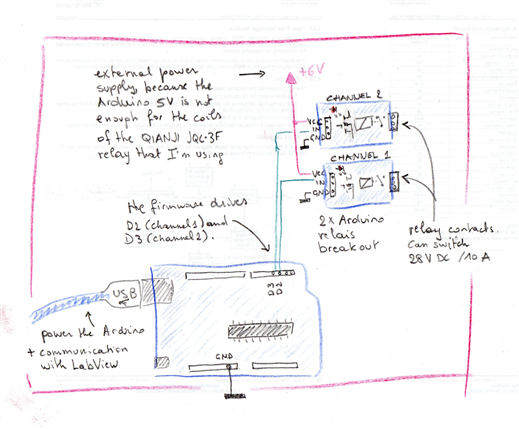 external power
supply, because the
Arduino 5V is not
enough for the coils
of the QIANJI JQC-3F
relay that I'm using
+6V
CHANNEL 2
VCC
IN
GND
CHANNEL 1
VCC
IN
GND
the firmware drives
D2 (channel1) and
D3 (channel2).
2x Arduino
relais
breakout
relay contacts.
Can switch
28V DC / 10 A
D3
D2
USB
GND
power the Arduino
+ communication
with LabView